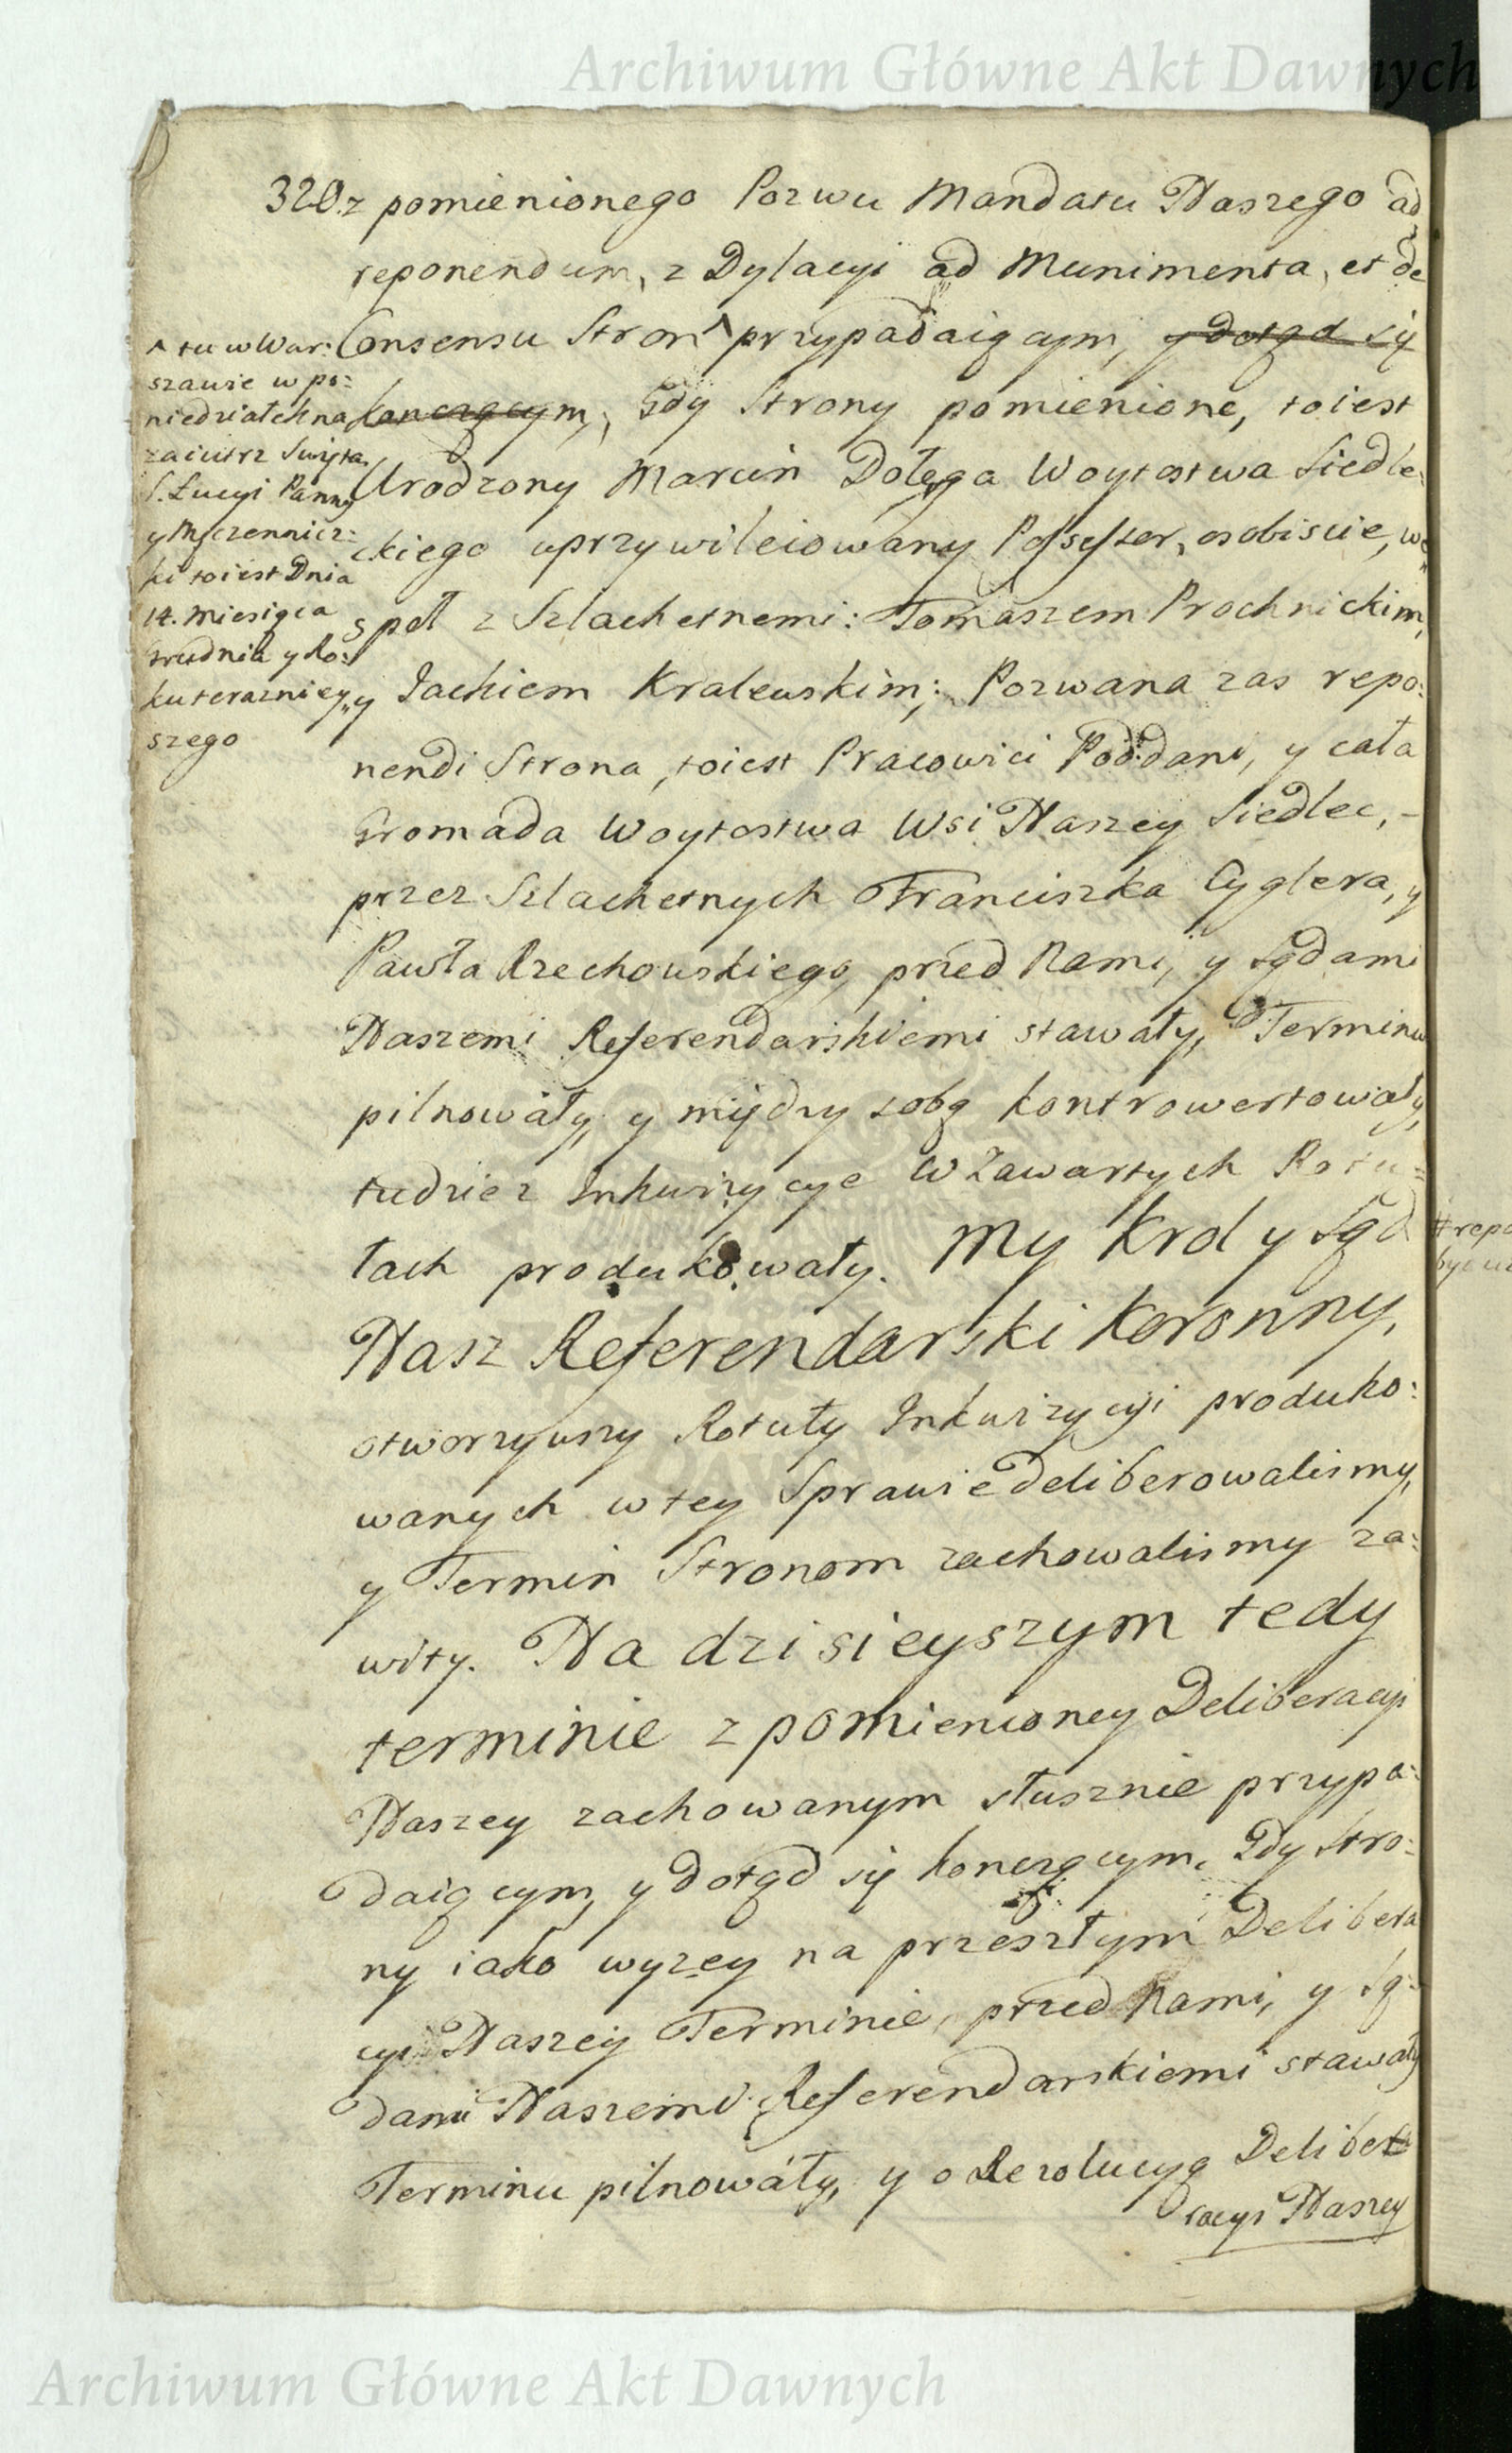 Archiwum Główne Akt Dawnych
320. z pomienionego Pozwu Mandatu Naszego ad
reponendum, z Dylacyi ad Munimenta, et de
Consensu Stron ^ przypadaiącym, y dotąd się
konczącym, Gdy Strony pomienione, toiest
Urodzony Marcin Dołęga Woytostwa Siedle:
ckiego uprzywileiowany Possessor, osobiscie, we
społ z Szlachetnemi: Tomaszem Prochnickim,
y Jackiem Kralewskim; Pozwana zas repo:
nendi Strona, toiest Pracowici Poddani, y cała
Gromada Woytostwa Wsi Naszey Siedlec, -
przez Szlachetnych Franciszka Cyglera, y
Pawła Rzechowskiego, przed Nami, y Sądami
Naszemi Referendarskiemi stawały, Terminu
pilnowały, y między sobą kontrowertowały,
tudziez Inkwizycye w Zawartych Rotu:
łach produkowały. My Krol y Sąd
Nasz Referendarski Koronny,
otworzywszy Rotuły Inkwizycyi produko:
wanych w tey Sprawie deliberowalismy,
y Termin Stronom zachowalismy za:
wity. Na dzisieyszym tedy
terminie z pomienioney Deliberacyi
Naszey zachowanym słusznie przypa:
daiącym, y dotąd się konczącym, Gdy Stro:
ny iako wyzey na przeszłym Delibera
cyi Naszey Terminie, przed Nami, y Są:
dami Naszemi Referendarskiemi stawały
Terminu pilnowały, y o Rezolucyą Delibe
racyi Naszey
^ tu w War:
szawie w po:
niedziałek na
zaiutrz Swięta
S. Łucyi Panny
y Męczennicz:
ki toiest Dnia
14. Miesiąca
Grudnia y Ro:
ku terazniey⸗
szego
# repo
Archiwum Główne Akt Dawnych